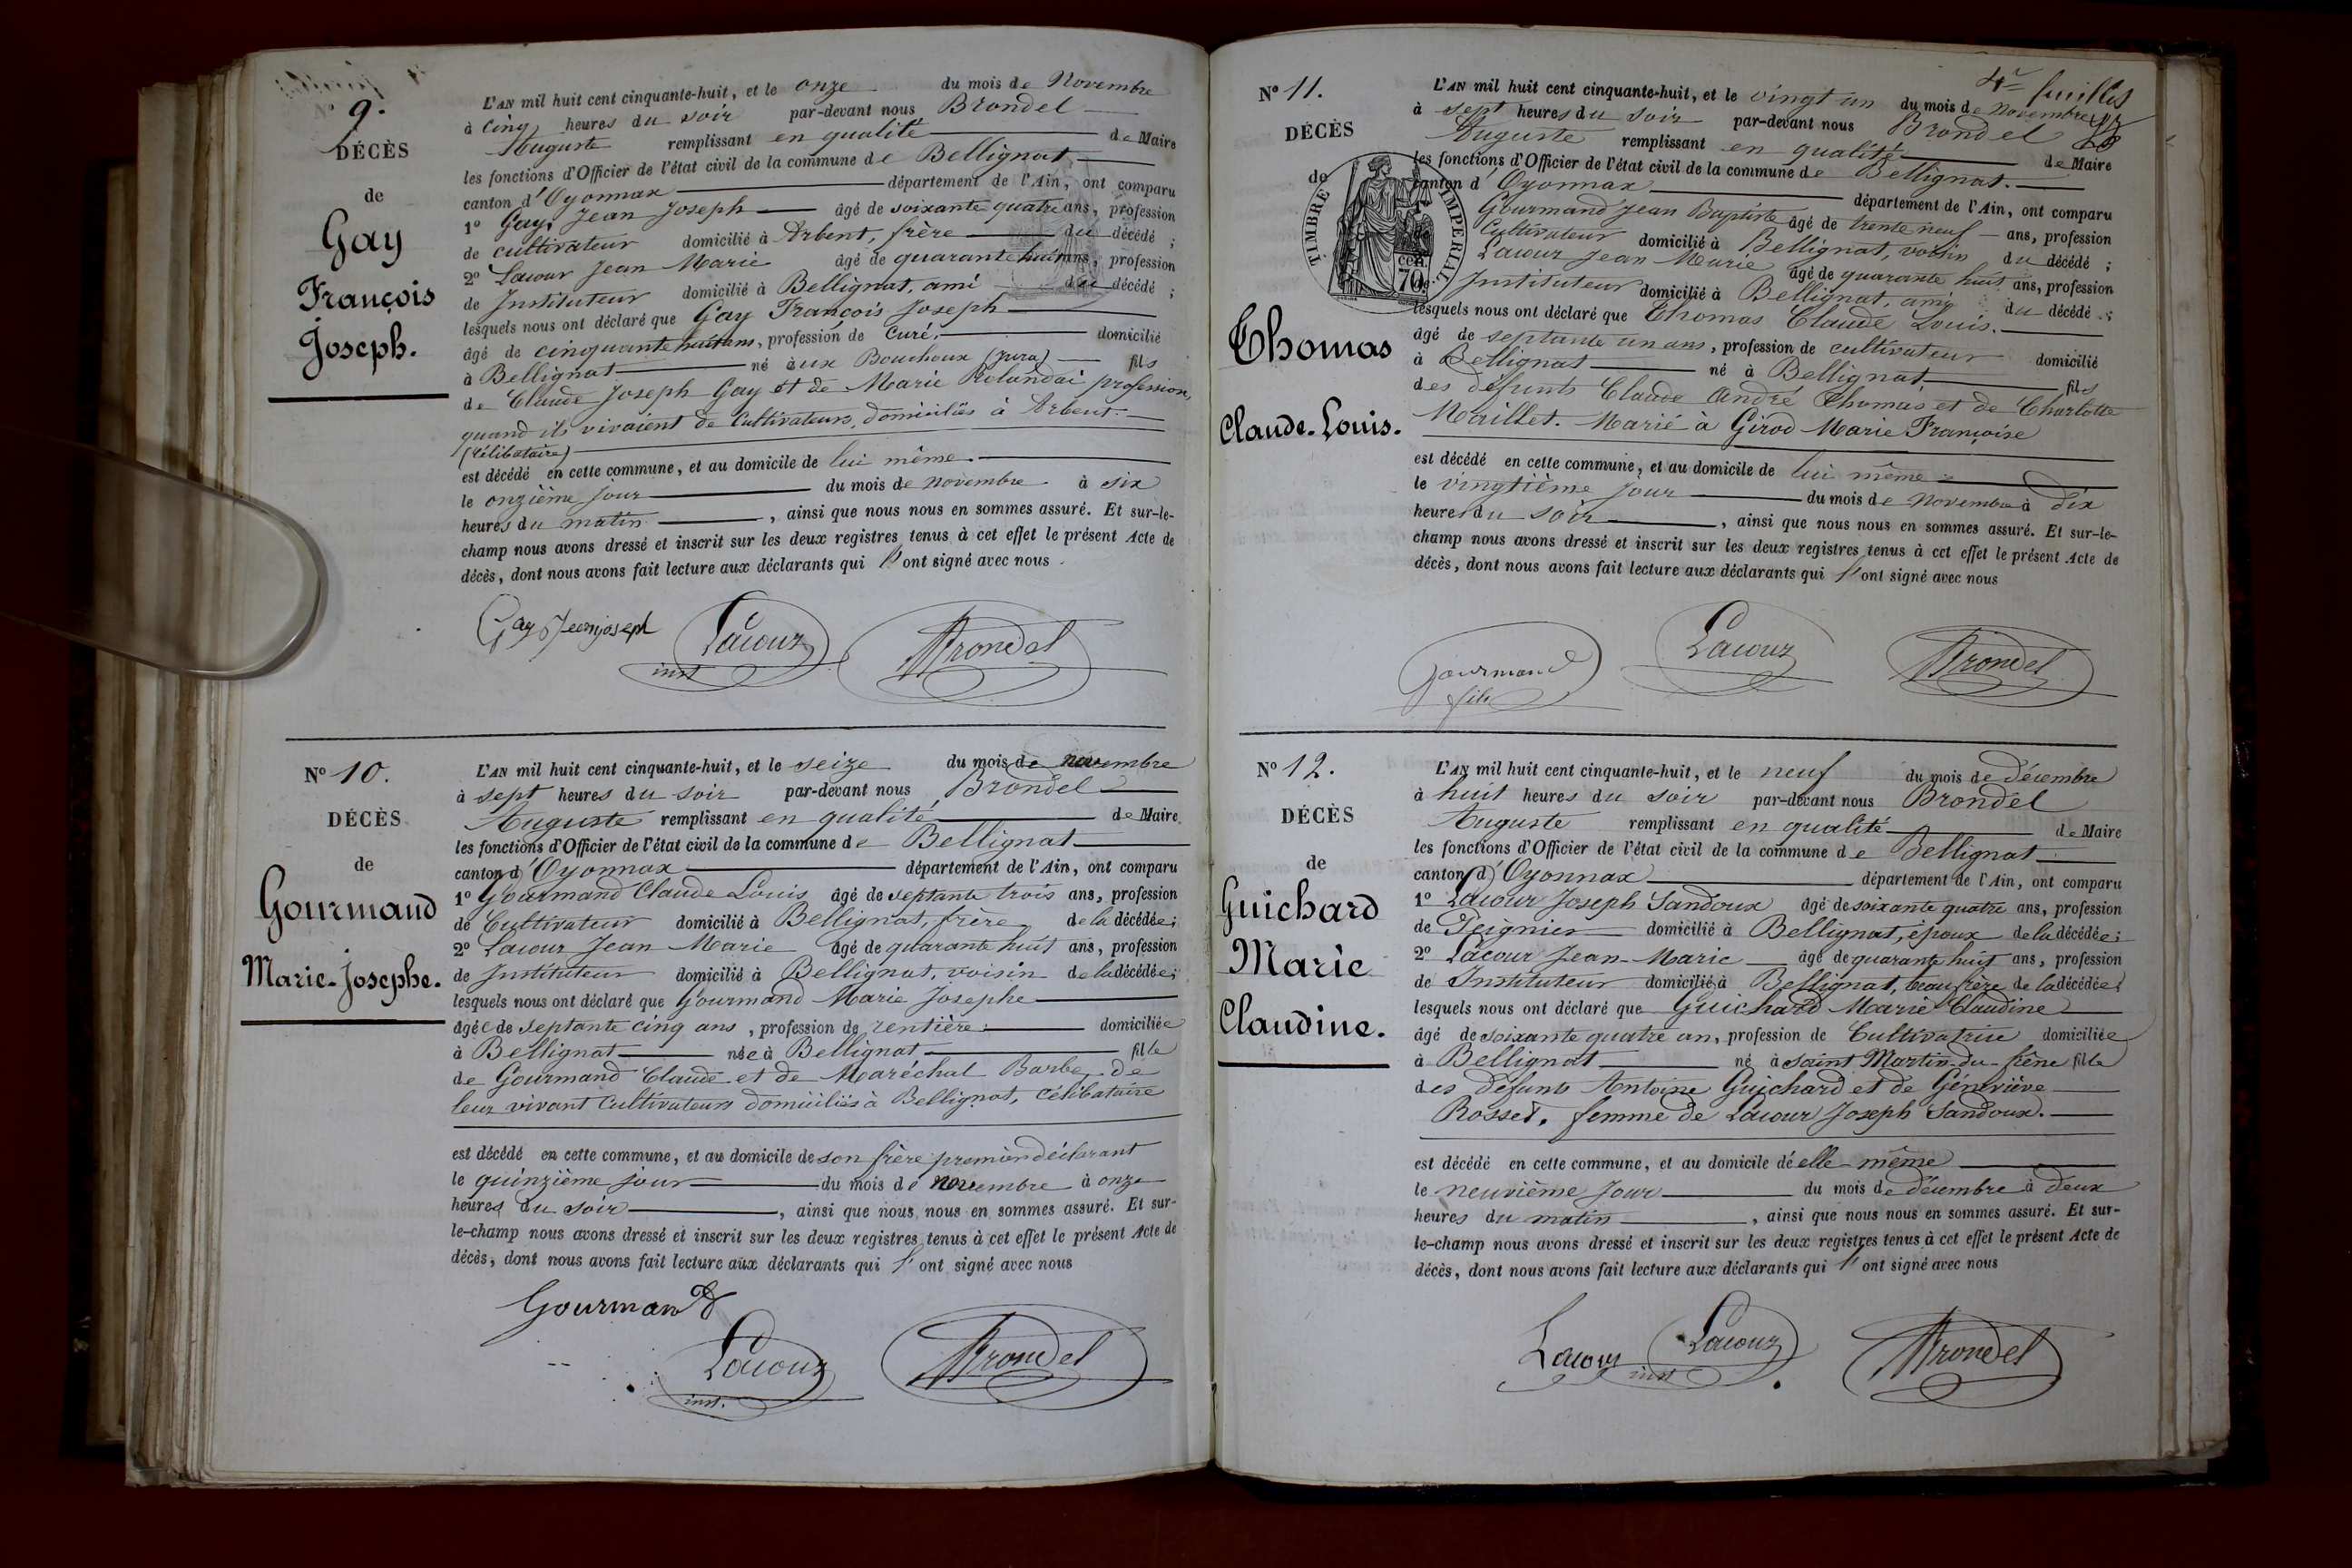 9.
DÉCÈS
de
Gay
François
Joseph.
L'AN mil huit cent cinquante-huit, et le onze du mois de Novembre
à cinq heures du soir par-devant nous Brondel
Auguste remplissant en qualité de Maire
les fonctions d'Officier de l'état civil de la commune de Bellignat
canton d'Oyonnax département de l'Ain, ont comparu
1° Gay, Jean Joseph âgé de soixante quatre ans, profession
de cultivateur domicilié à Arbent, frère du décédé ;
2° Lacour Jean Marie âgé de quarante huit ans, profession
de Instituteur domicilié à Bellignat, ami du décédé ;
lesquels nous ont déclaré que Gay François Joseph
âgé de cinquante huit ans, profession de Curé, domicilié
à Bellignat né aux Bouchoux (Jura) fils
de Claude Joseph Gay et de Marie Rolandai profession,
quand ils vivaient de Cultivateurs, domiciliés à Arbent.
(Célibataire)
est décédé en cette commune, et au domicile de lui même.
le onzième jour du mois de novembre à six
heures du matin , ainsi que nous nous en sommes assuré. Et sur-le-
champ nous avons dressé et inscrit sur les deux registres tenus à cet effet le présent Acte de
décès, dont nous avons fait lecture aux déclarants qui l'ont signé avec nous
Gay Jeanjoseph Lacour Brondel
inst
N° 10.
DÉCÈS
de
Gourmand
Marie-Josephe.
L'AN mil huit cent cinquante-huit, et le seize du mois de novembre
à sept heures du soir par-devant nous Brondel
Auguste remplissant en qualité de Maire
les fonctions d'Officier de l'état civil de la commune de Bellignat
canton d'Oyonnax département de l'Ain, ont comparu
1° Gourmand Claude Louis âgé de septante trois ans, profession
de Cultivateur domicilié à Bellignat, frère de la décédée;
2° Lacour Jean Marie âgé de quarante huit ans, profession
de Instituteur domicilié à Bellignat, voisin de la décédée;
lesquels nous ont déclaré que Gourmand Marie Josephe
âgée de septante cinq ans, profession de rentière domiciliée
à Bellignat née à Bellignat fille
de Gourmand Claude et de Maréchal Barbe, de
leur vivant Cultivateurs domiciliés à Bellignat, célibataire
est décédé en cette commune, et au domicile de son frère premier déclarant
le quinzième jour du mois de novembre à onze
heures du soir , ainsi que nous nous en sommes assuré. Et sur-
le-champ nous avons dressé et inscrit sur les deux registres tenus à cet effet le présent Acte de
décès, dont nous avons fait lecture aux déclarants qui l'ont signé avec nous
Gourmand
Lacour Brondel
inst.
4e feuillet
N° 11.
DÉCÈS
de
TIMBRE IMPERIAL
70 cen.
Thomas
Claude-Louis.
L'AN mil huit cent cinquante-huit, et le vingt un du mois de novembre
à sept heures du soir par-devant nous Brondel
Auguste remplissant en qualité de Maire
les fonctions d'Officier de l'état civil de la commune de Bellignat.
canton d'Oyonnax département de l'Ain, ont comparu
Gourmand Jean Baptiste âgé de trente neuf ans, profession
Cultivateur domicilié à Bellignat, voisin du décédé ;
Lacour Jean Marie âgé de quarante huit ans, profession
Instituteur domicilié à Bellignat, ami du décédé ;
lesquels nous ont déclaré que Thomas Claude Louis.
âgé de septante un ans, profession de cultivateur domicilié
à Bellignat né à Bellignat fils
des défunts Claude André Thomas et de Charlotte
Maillet. Marié à Girod Marie Françoise
est décédé en cette commune, et au domicile de lui même
le vingtième jour du mois de novembre à dix
heures du soir , ainsi que nous nous en sommes assuré. Et sur-le-
champ nous avons dressé et inscrit sur les deux registres tenus à cet effet le présent Acte de
décès, dont nous avons fait lecture aux déclarants qui l'ont signé avec nous
Gourmand Lacour Brondel
fils
N° 12.
DÉCÈS
de
Guichard
Marie
Claudine.
L'AN mil huit cent cinquante-huit, et le neuf du mois de décembre
à huit heures du soir par-devant nous Brondel
Auguste remplissant en qualité de Maire
les fonctions d'Officier de l'état civil de la commune de Bellignat
canton d'Oyonnax département de l'Ain, ont comparu
1° Lacour Joseph Sandoux âgé de soixante quatre ans, profession
de Peignier domicilié à Bellignat, époux de la décédée;
2° Lacour Jean-Marie âgé de quarante huit ans, profession
de Instituteur domicilié à Bellignat, beau frère de la décédée;
lesquels nous ont déclaré que Guichard Marie Claudine
âgé de soixante quatre an, profession de Cultivatrice domiciliée
à Bellignat né à saint Martin-du-frêne fille
des défunts Antoine Guichard et de Généviève
Rosset, femme de Lacour Joseph Sandoux.
est décédé en cette commune, et au domicile de elle-même
le neuvième jour du mois de décembre à deux
heures du matin , ainsi que nous nous en sommes assuré. Et sur-
le-champ nous avons dressé et inscrit sur les deux registres tenus à cet effet le présent Acte de
décès, dont nous avons fait lecture aux déclarants qui l'ont signé avec nous
Lacour Lacour Brondel
inst